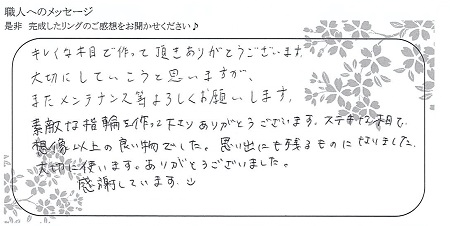 職人へのメッセージ
是非 完成したリングのご感想をお聞かせください♪
キレイな木目で作って頂きありがとうございます。
大切にしていこうと思いますが、
またメンテナンス等よろしくお願いします。
素敵な指輪を作って下さりありがとうございます。ステキな木目で、
想像以上の良い物でした。思い出にも残るものになりました。
大切に使います。ありがとうございました。
感謝しています。